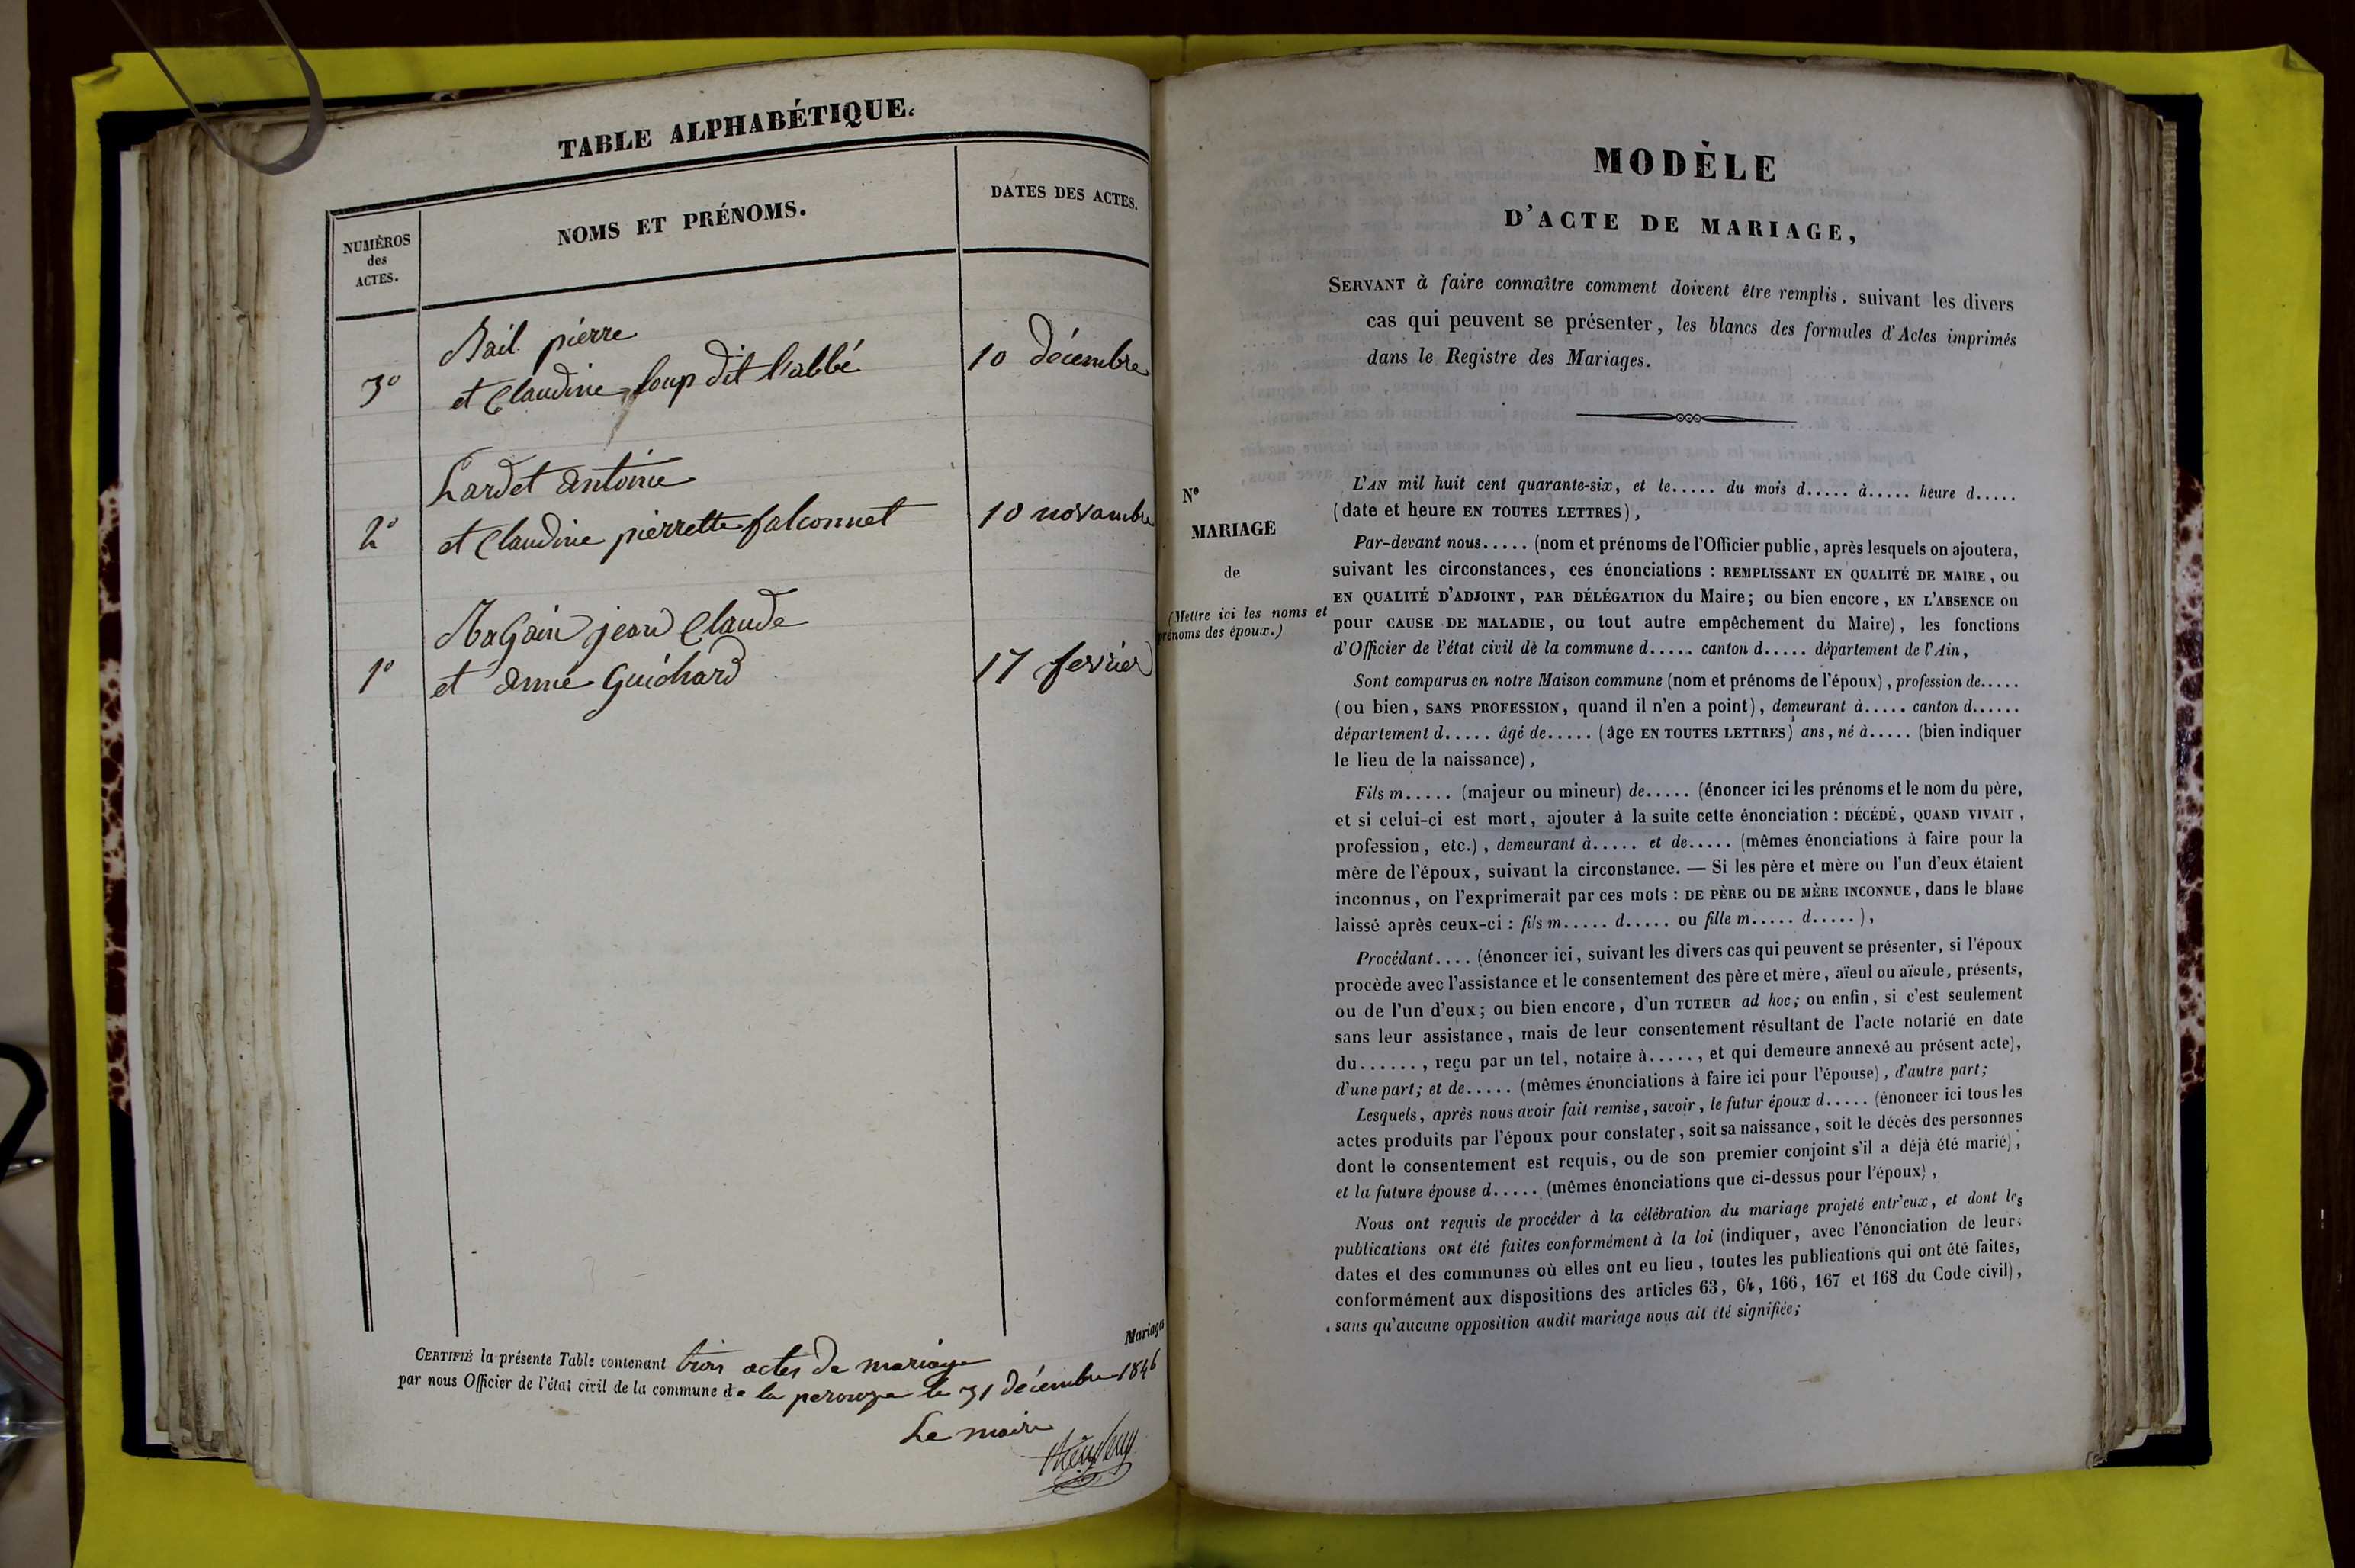 TABLE ALPHABÉTIQUE.
NUMÉROS
des
ACTES.
NOMS ET PRÉNOMS.
DATES DES ACTES.
Bail pierre
3° et Claudine loup dit l'abbé 10 décembre
Lardet antoine
2° et Claudine pierrette falconnet 10 novambre
jean Claude
1° et anne Guichard 17 fevrier
Mariages
CERTIFIÉ la présente Table contenant trois actes de mariage
par nous Officier de l'état civil de la commune de la perouze le 31 décembre 1846
Le maire
MODÈLE
D'ACTE DE MARIAGE,
SERVANT à faire connaître comment doivent être remplis, suivant les divers
cas qui peuvent se présenter, les blancs des formules d'Actes imprimés
dans le Registre des Mariages.
N°
MARIAGE
de
(Mettre ici les noms et
prénoms des époux.)
L'AN mil huit cent quarante-six, et le..... du mois d..... à..... heure d.....
(date et heure EN TOUTES LETTRES),
Par-devant nous..... (nom et prénoms de l'Officier public, après lesquels on ajoutera,
suivant les circonstances, ces énonciations : REMPLISSANT EN QUALITÉ DE MAIRE, ou
EN QUALITÉ D'ADJOINT, PAR DÉLÉGATION du Maire; ou bien encore, EN L'ABSENCE ou
pour CAUSE DE MALADIE, ou tout autre empêchement du Maire), les fonctions
d'Officier de l'état civil de la commune d..... canton d..... département de l'Ain,
Sont comparus en notre Maison commune (nom et prénoms de l'époux), profession de.....
(ou bien, SANS PROFESSION, quand il n'en a point), demeurant à..... canton d......
département d..... âgé de..... (âge EN TOUTES LETTRES) ans, né à..... (bien indiquer
le lieu de la naissance),
Fils m..... (majeur ou mineur) de..... (énoncer ici les prénoms et le nom du père,
et si celui-ci est mort, ajouter à la suite cette énonciation : DÉCÉDÉ, QUAND VIVAIT,
profession, etc.), demeurant à..... et de..... (mêmes énonciations à faire pour la
mère de l'époux, suivant la circonstance. — Si les père et mère ou l'un d'eux étaient
inconnus, on l'exprimerait par ces mots : DE PÈRE OU DE MÈRE INCONNUE, dans le blanc
laissé après ceux-ci : fils m..... d..... ou fille m..... d.....),
Procédant.... (énoncer ici, suivant les divers cas qui peuvent se présenter, si l'époux
procède avec l'assistance et le consentement des père et mère, aïeul ou aïeule, présents,
ou de l'un d'eux; ou bien encore, d'un TUTEUR ad hoc; ou enfin, si c'est seulement
sans leur assistance, mais de leur consentement résultant de l'acte notarié en date
du......, reçu par un tel, notaire à....., et qui demeure annexé au présent acte),
d'une part; et de..... (mêmes énonciations à faire ici pour l'épouse), d'autre part;
Lesquels, après nous avoir fait remise, savoir, le futur époux d..... (énoncer ici tous les
actes produits par l'époux pour constater, soit sa naissance, soit le décès des personnes
dont le consentement est requis, ou de son premier conjoint s'il a déjà été marié);
et la future épouse d..... (mêmes énonciations que ci-dessus pour l'époux),
Nous ont requis de procéder à la célébration du mariage projeté entr'eux, et dont les
publications ont été faites conformément à la loi (indiquer, avec l'énonciation de leurs
dates et des communes où elles ont eu lieu, toutes les publications qui ont été faites,
conformément aux dispositions des articles 63, 64, 166, 167 et 168 du Code civil),
sans qu'aucune opposition audit mariage nous ait été signifiée;